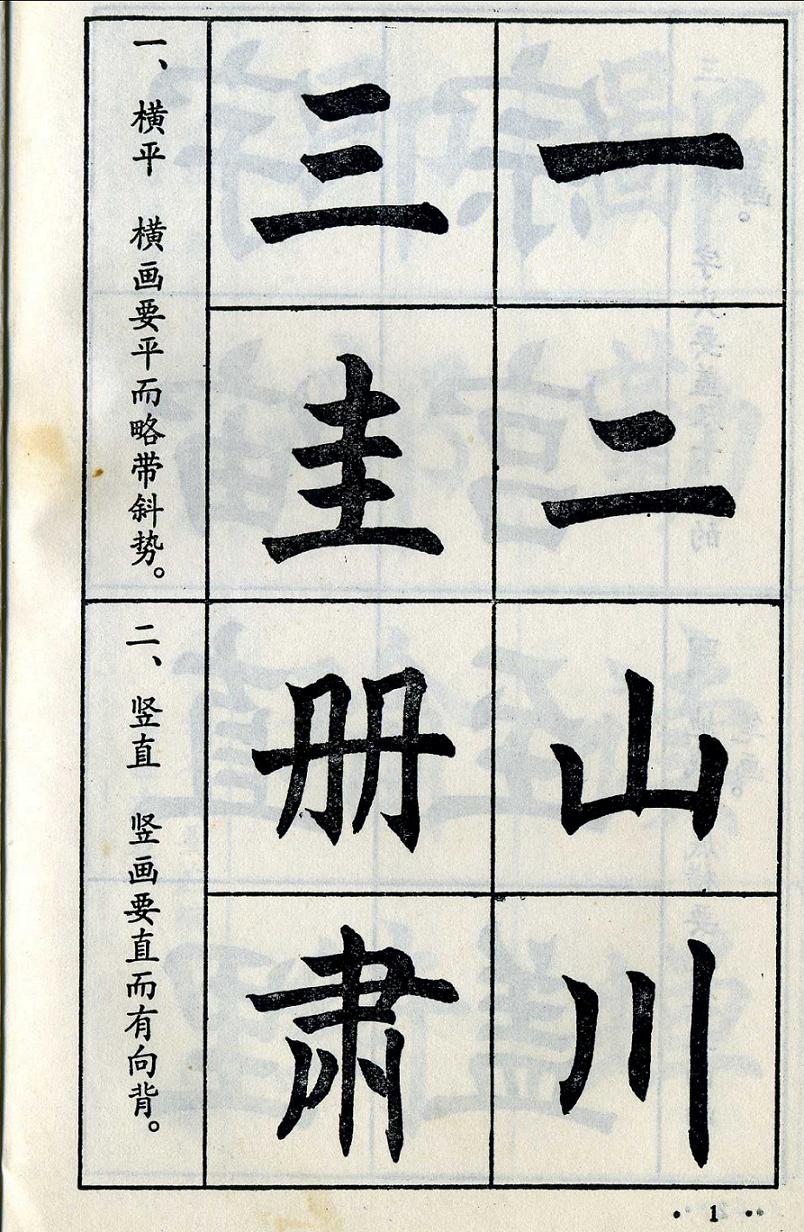 一
二
三
圭
一、横平 横画要平而略带斜势。
山
川
册
肃
二、竖直 竖画要直而有向背。
·1··